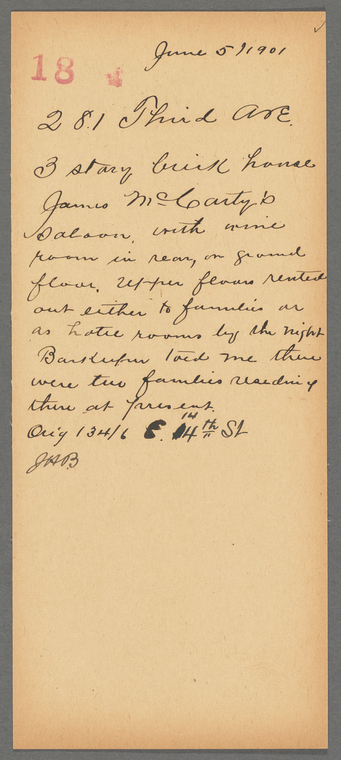 June 5/1901
18
281 Third Ave.
3 story brick house
James McCarty's
Saloon, with wine
room in rear, on ground
floor. Upper floors rented
out either to families or
as hotel rooms by the night
Barkeeper told me there
were two families reseding
there at present.
Orig 134/6 E. 14th St
JHB